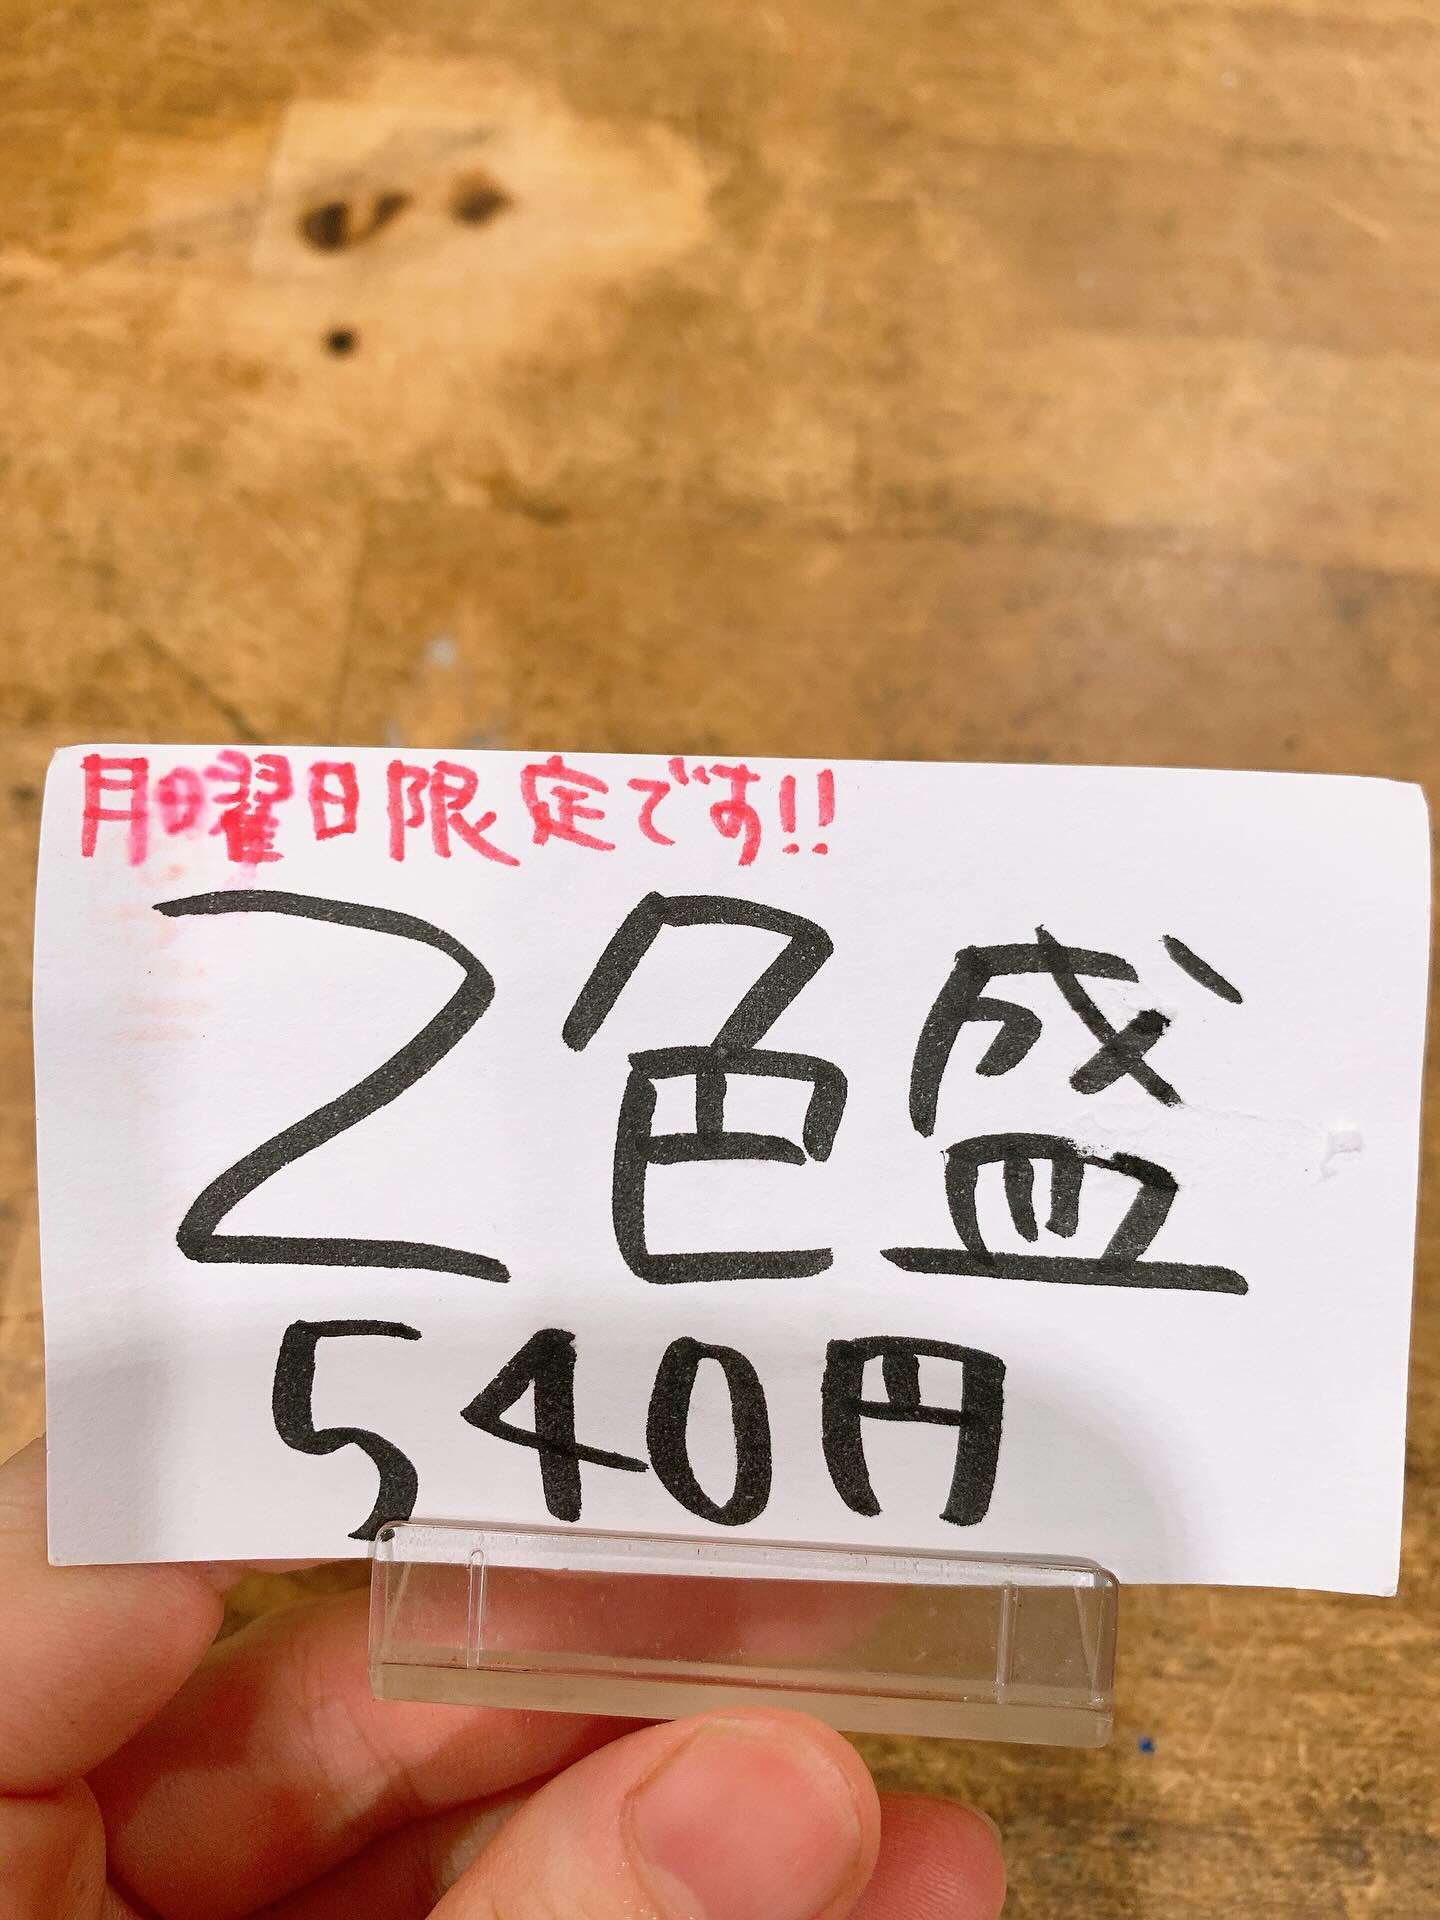 月曜日限定です!!
2色盛
540円